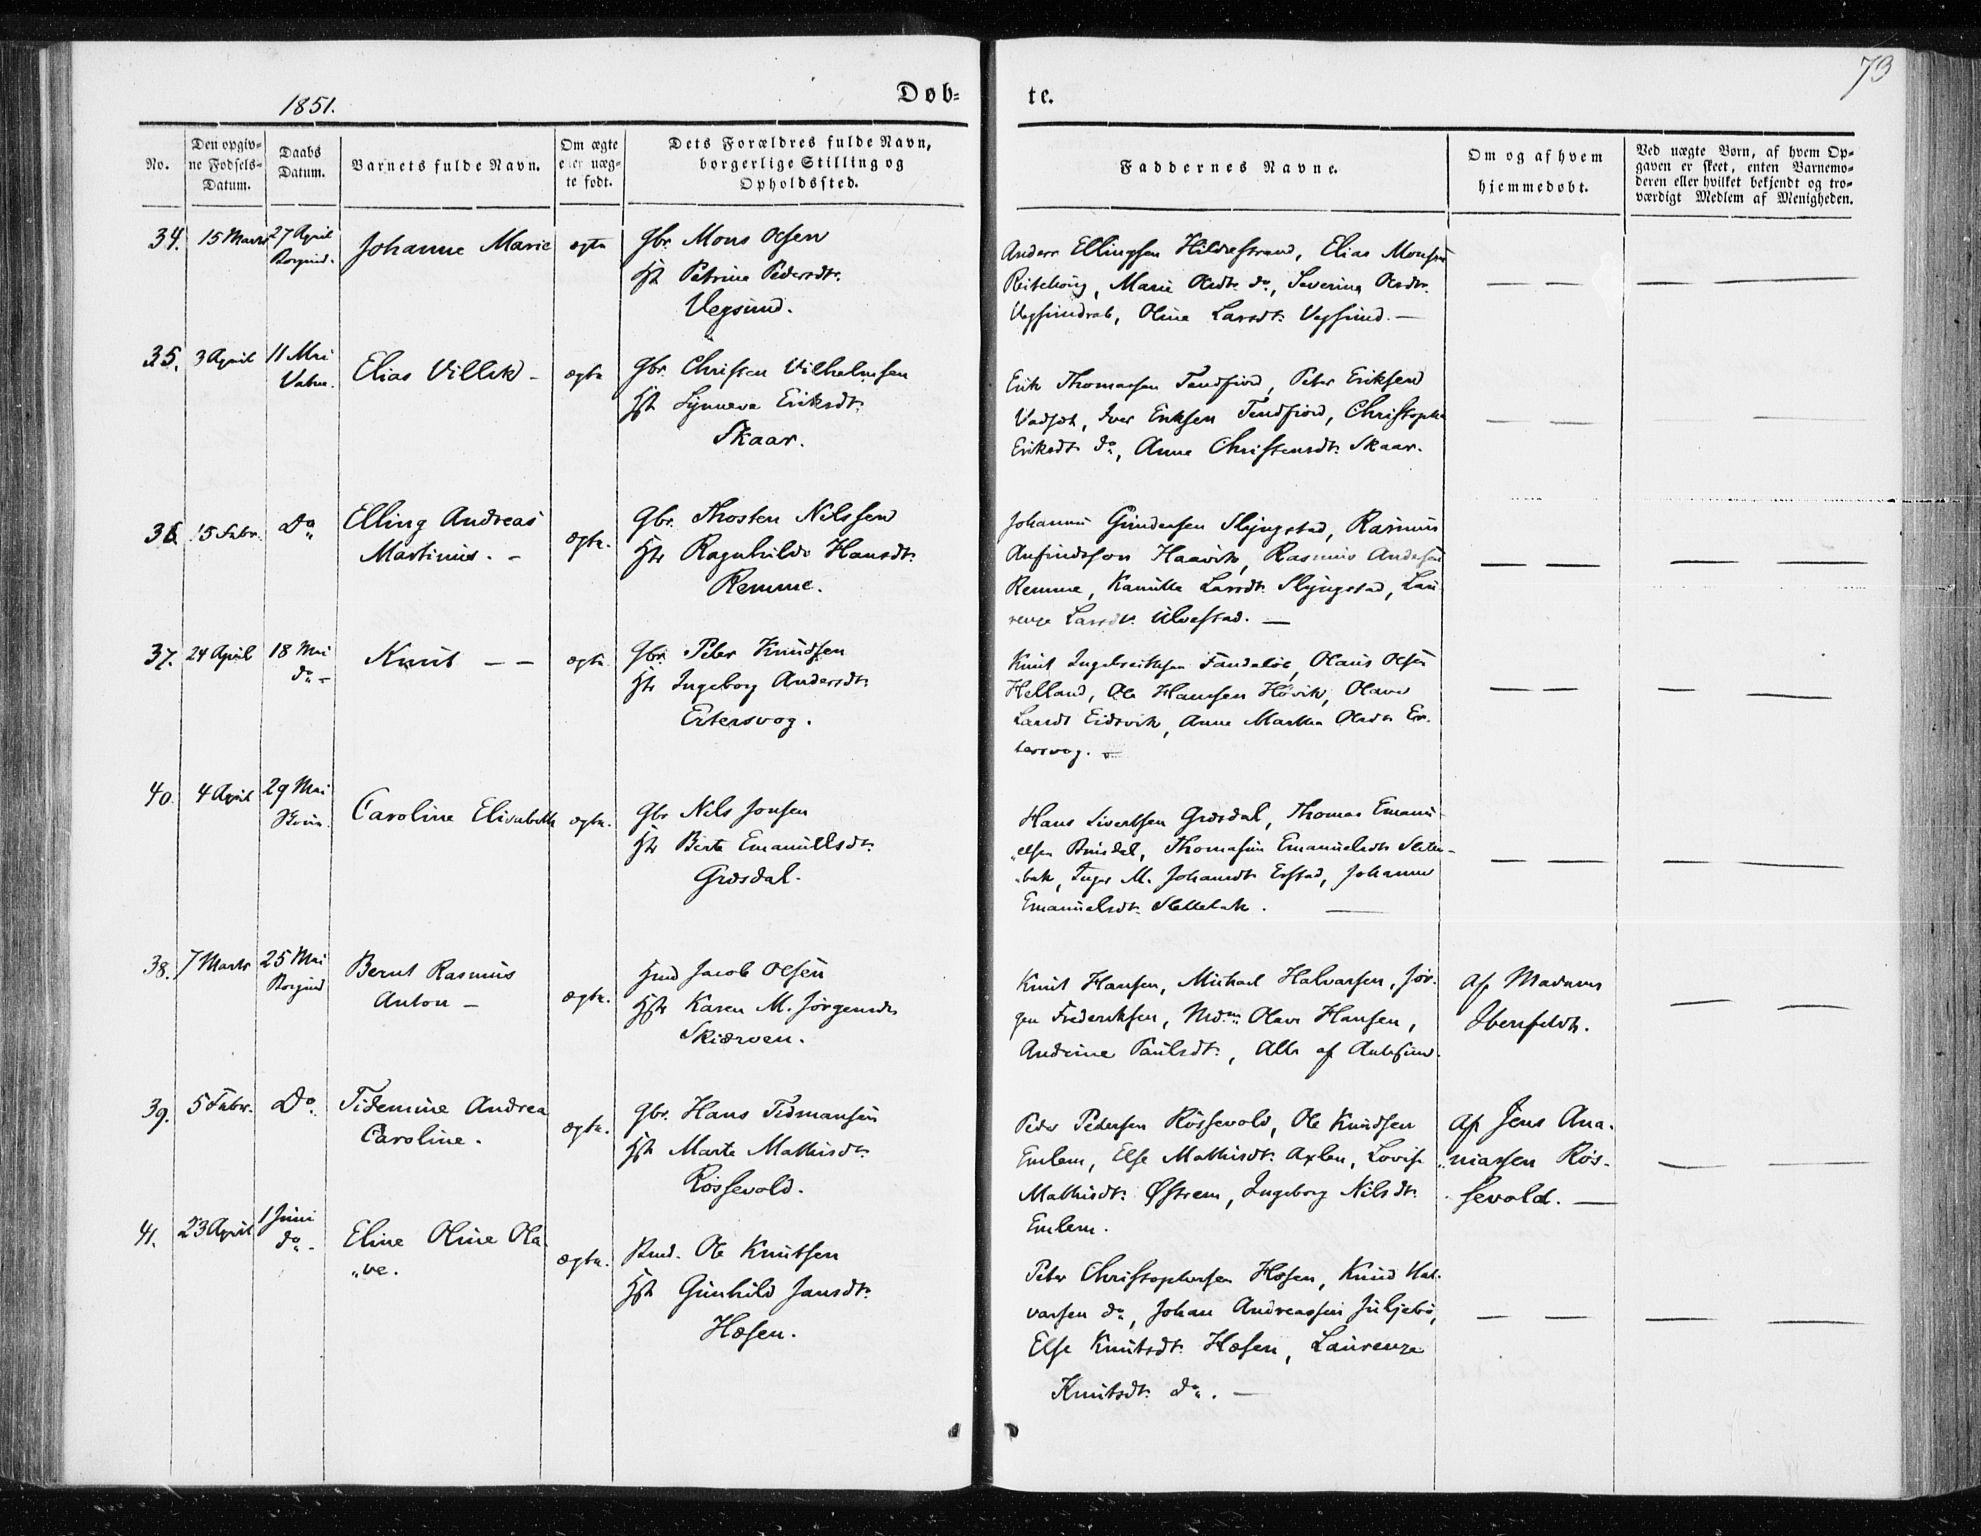 73
1851.
Døb=
te.
No.
Den opgiv=
ne Fødsels=
Datum.
Daabs
Datum.
Barnets fulde Navn.
Om ægte
eller uæg=
te født.
Dets Forældres fulde Navn,
borgerlige Stilling og
Opholdssted.
Faddernes Navne.
Om og af hvem
hjemmedøbt.
Ved uægte Børn, af hvem Op=
gaven er skeet, enten Barnemo=
deren eller hvilket bekjendt og tro=
værdigt Medlem af Menigheden.
34. 15 Marts 27 April Johanne Marie ægte Gbr. Mons Olsen
Borgund. Hst Petrine Pedersdtr.
Vegsund.
Anders Ellingsen Hildrestrand, Elias Monsen
Marie Olsdtr. do, Severine Olsdtr.
Oline Larsdtr. Vegsund. —
35. 3 April 11 Mai Elias Villak — ægte Gbr. Christen Vilhelmsen
Vatne. Hst Synneve Eriksdtr.
Skaar.
Erik Thomassen Tendfiord, Peter Eriksen
Iver Eriksen Tendfiord, Christophe
Eriksdtr. do, Anne Christensdtr. Skaar.
36 15 Febr. Do Elling Andreas ægte. Gbr. Thosten Nilssen
Martinus. — Hst Ragnhilde Hansdtr.
Remme.
Johannes Gundersen Slyngstad, Rasmus
Anfindsson Haavik, Rasmus Andersen
Remme, Kamilla Larsdtr. Slyngstad, Lau-
renze Larsdtr. Ulvestad. —
37. 24 April 18 Mai Knut — — ægte Gbr. Peter Knudsen
do — Hst Ingeborg Andersdtr.
Ertersvog.
Knut Olaus Olsen
Helland, Ole Hansen Hövik, Olave
Larsdt Eidsvik, Anne Martha Olsdtr. Er-
tersvog. —
40. 4 April 29 Mai Caroline Elisabeth ægte. Gbr Nils Jonsen
Hst Berte Emanuelsdtr.
Grøsdal.
Hans Sivertsen Grøsdal, Thomas Emanu-
elsen Thomasine Emanuelsdtr Slette-
bak, Inger M. Johansdtr. Johanne
Emanuelsdtr. Slettebak. —
38. 7 Marts 25 Mai Bernt Rasmus ægte. Hmd Jacob Olsen
Borgund Anton — Hst Karen M. Jørgensdtr
Skiærven.
Knut Hansen, Michael Halvarsen, Jør-
gen Frederiksen, Mdm. Olave Hansen,
Andrine Paulsdtr., Alle af Aalesund.
Af Madame
Ibenfeldt.
39. 5 Febr. Do. Tidemine Andrea ægte. Gbr. Hans Tidmansen
Caroline. Hst Marte Mathisdtr.
Røssevold.
Peder Pedersen Røssevold, Ole Knudsen
Emlem, Else Mathisdtr. Axlen, Lovise
Mathisdtr. Østrem, Ingeborg Nilsdtr.
Emlem.
Af Jens Ana-
niassen Røs-
sevold. —
41. 23 April 1 Juni Eline Oline Ola ægte. Bmd. Ole Knutsen
do — „ve. Hst Gunhild Jansdtr.
Hæsen.
Peter Christophersen Hæsen, Knud Hal-
varsen do, Johan Andreassen
Else Knutsdtr. Hæsen, Laurenze
Knutsdtr. do. —